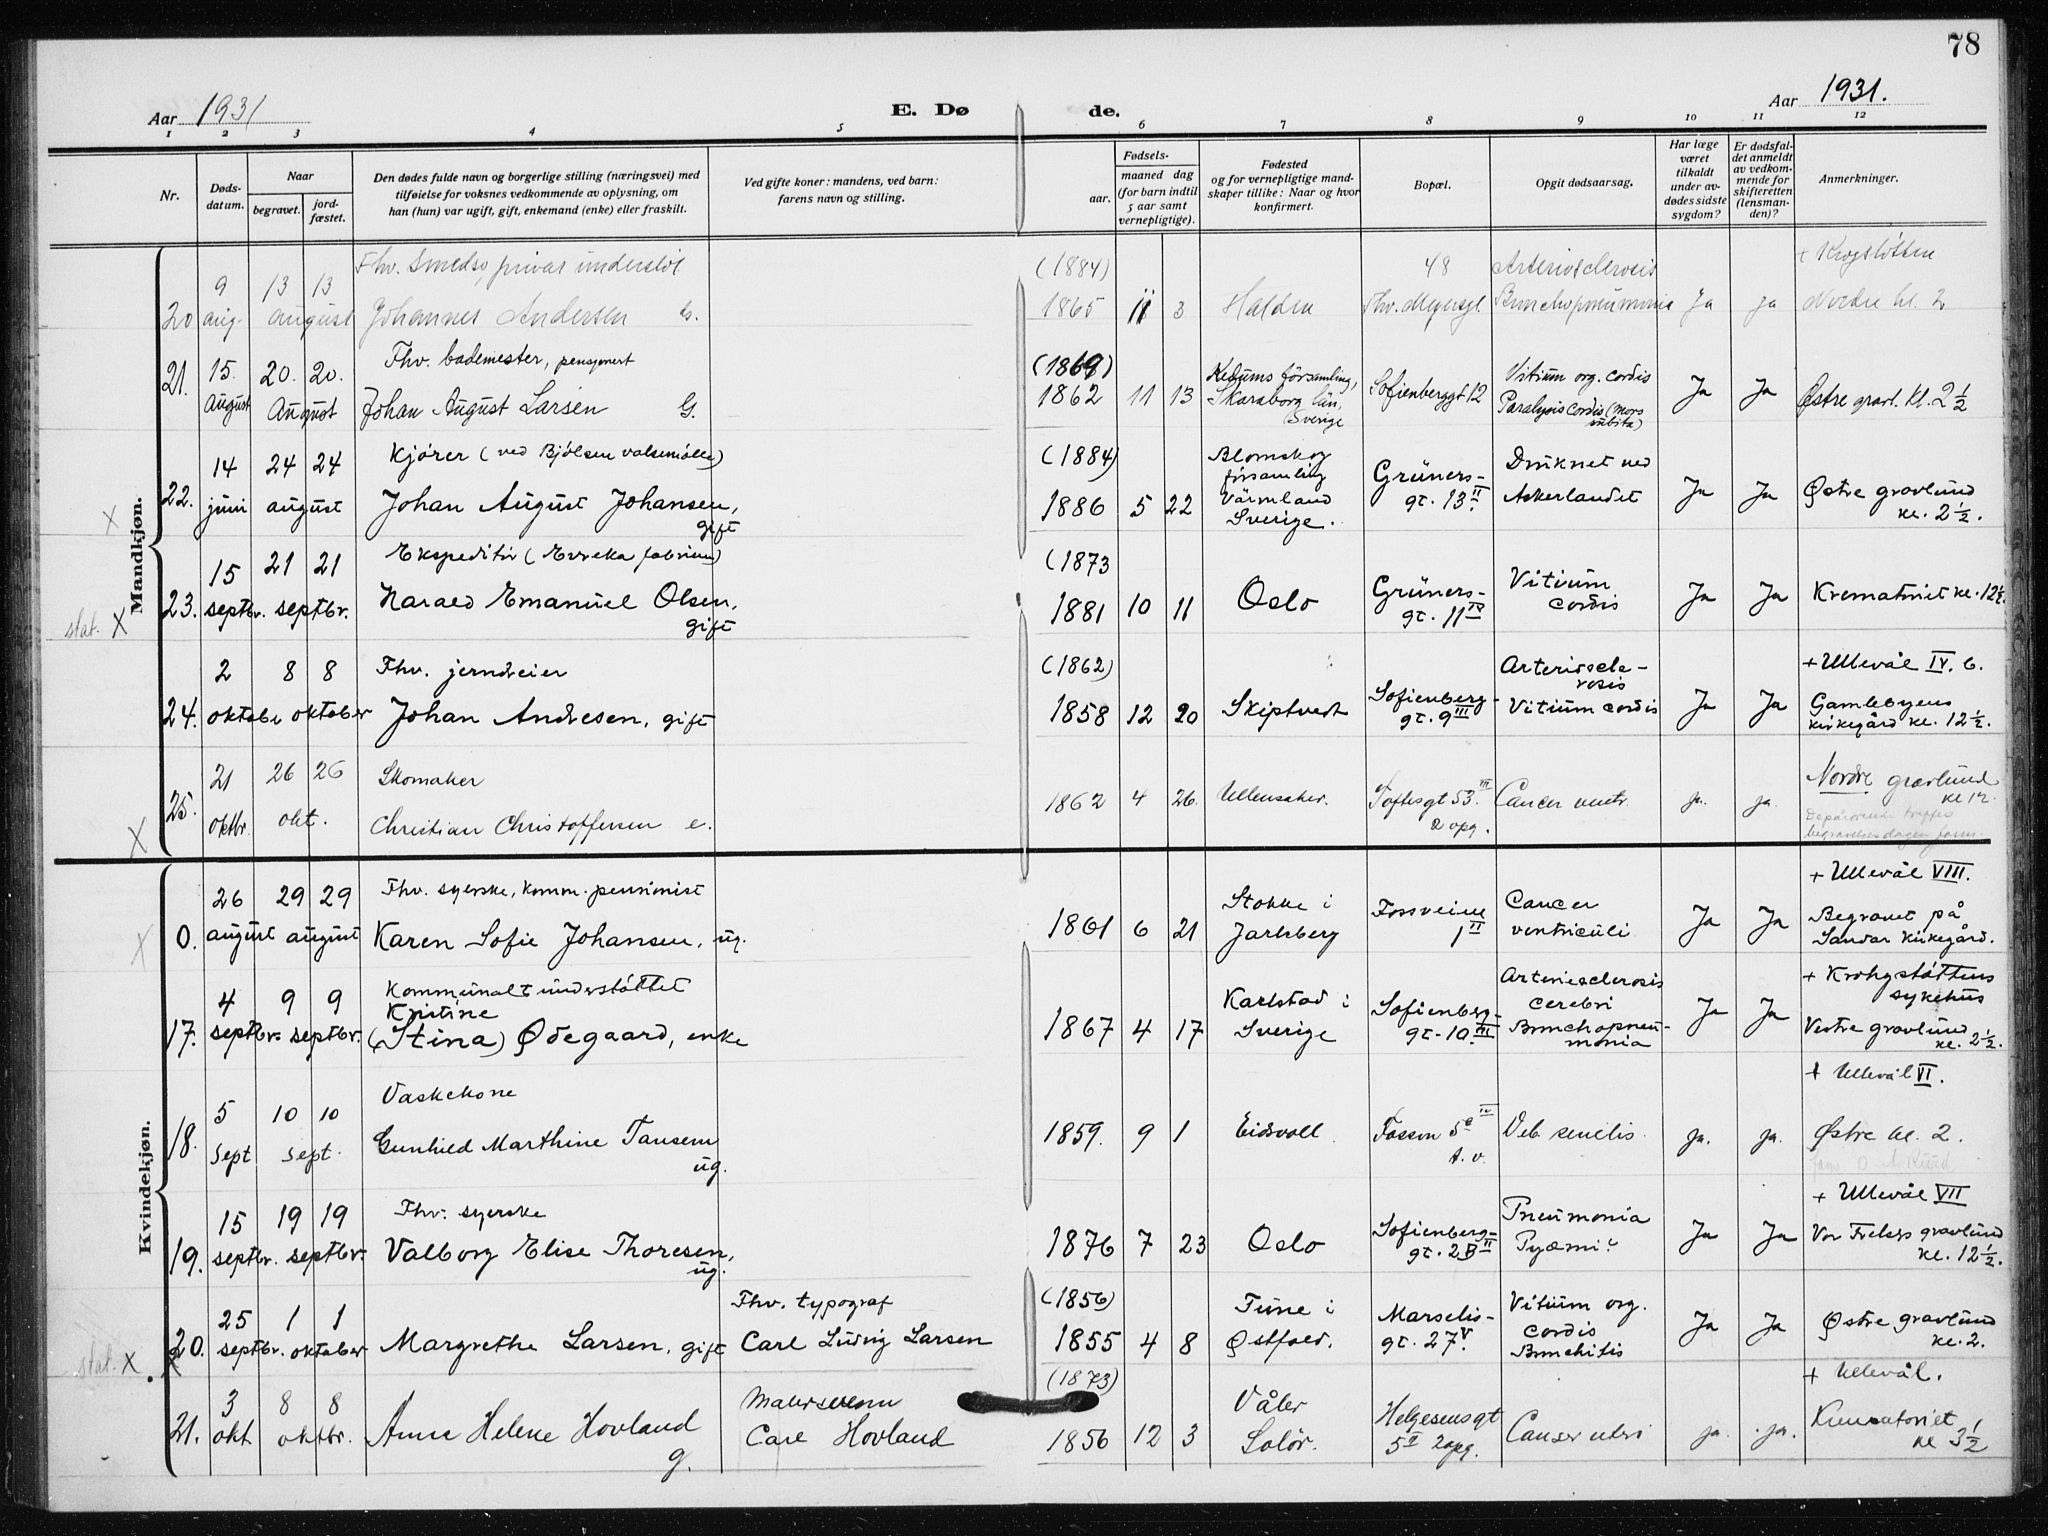 78
Aar 1931
E. Dø de.
Aar 1931.
1 2 3 4 5 6 7 8 9 10 11 12
Nr.
Døds-datum.
Naar
begravet.
jord-fæstet.
Den dødes fulde navn og borgerlige stilling (næringsvei) med
tilføielse for voksnes vedkommende av oplysning, om
han (hun) var ugift, gift, enkemand (enke) eller fraskilt.
Ved gifte koner: mandens, ved barn:
farens navn og stilling.
Fødsels-
aar.
maaned dag
(for barn indtil
5 aar samt
vernepligtige).
Fødested
og for vernepligtige mand-
skaper tillike: Naar og hvor
konfirmert.
Bopæl.
Opgit dødsaarsag.
Har læge
været
tilkaldt
under av-
dødes sidste
sygdom?
Er dødsfal-
det anmeldt
av vedkom-
mende for
skifteretten
(lensman-
den)?
Anmerkninger.
Mandkjøn.
9 13 13 Fhv. Smedsv, privat understøt. (1884) 48 Arteriosclerosis + Krogstøtten
20 aug. august Johannes Andersen G. 1865 11 3 Halden Thv. Meyersgt. Bronchopneumonia Ja ja Nordre kl. 2
15. 20. 20. Fhv. bademester, pensjonert (1869) Kedums församling, Vitium org. cordis
21. August August Johan August Larsen G. 1862 11 13 Skaraborg län, Sofienberggt 12 Paralysis cordis (mors Ja Ja Østre gravl. kl. 2 1/2
Sverige subita)
14 24 24 Kjører (ved Bjølsen valsemølle) (1884) Blomskog församling Grüners- Druknet ved
X 22. juni august Johan August Johansen, gift 1886 5 22 Värmland Sverige. gt. 13 II Askerlandet Ja Ja Østre gravlund kl. 2 1/2.
15 21 21 Ekspeditør (Evreka fabrikker) (1873 Grüners- Vitium
stat. X 23. septbr. septbr. Harald Emanuel Olsen, gift 1881 10 11 Oslo gt. 11 IV cordis Ja Ja Krematoriet kl. 12 1/2.
2 8 8 Fhv. jerndreier (1862) Arterioscle-rosis + Ullevål IV. 6.
24. oktobe oktober Johan Andresen, gift 1858 12 20 Skiptvedt Sofienberg-gt. 9 III Vitium cordis Ja Ja Gamlebyens kirkegård kl. 12 1/2.
21 26 26 Skomaker Nordre gravlund
X 25. oktbr. okt. Christian Christoffersen e. 1862 4 26. Ullensaker. Toftesgt 53. III 2 opg. Cancer ventr. ja. ja. kl 12.
begravelsesdagen form.
Kvindekjøn.
26 29 29 Fhv. syerske, komm. pensionist Stokke i Fossveien Cancer + Ullevål VIII.
X 0. august august Karen Sofie Johansen, ug. 1861 6 21 Jarlsberg 1 II ventriculi Ja Ja Begravet på Sandar kirkegård.
4 9 9 Kommunalt understøttet Arteriesclerosis + Krohgstøttens sykehus
Kristine Karlstad i Sofienberg- cerebri
17. septbr. septbr. (Stina) Ødegaard, enke 1867 4 17 Sverige gt. 10 III Bronchopneu-monia Ja Ja Vestre gravlund kl. 2 1/2.
5 10 10 Vaskekone + Ullevål VI.
18. sept sept. Gunhild Marthine Tansem ug. 1859. 9 1 Eidsvoll. Fossvn 5 e IV t. v. Deb. senilis. ja. ja. Østre kl. 2.
15 19 19 Fhv. syerske Pneumonia + Ullevål VII
19. septbr. septbr. Valborg Elise Thoresen, ug. 1876 7 23 Oslo Sofienberg-gt. 2B II Pyæmi? Ja Ja Vor Frelsers gravlund kl. 12 1/2.
25 1 1 Fhv. typograf (1856) Tune i Marselis- Vitium org.
stat. X X 20. septbr. oktober Margrethe Larsen, gift Carl Ludvig Larsen 1855 4 8 Østfold. gt. 27 V. cordis Bronchitis Ja Ja Østre gravlund kl. 2.
3 8 8 Malersvenn (1873) Våler Helgesensgt + Ullevål.
21. okt oktbr. Anna Helene Hovland g. Carl Hovland 1856 12 3 Solør. 5 II 2opg. Canser uteri ja. ja. Krematoriet kl 3 1/2